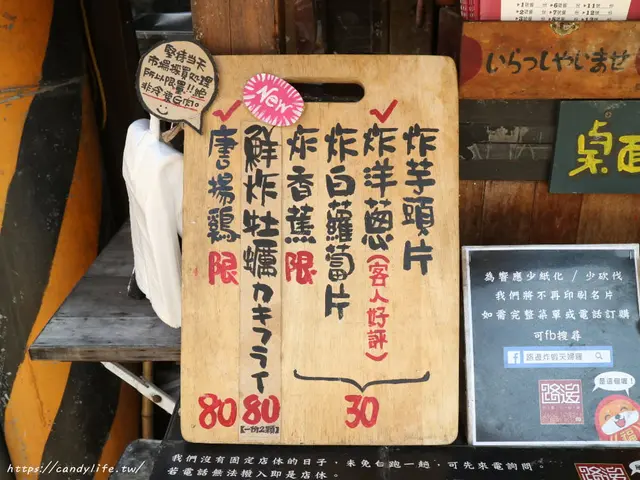 堅持當天
市場採買處理
所以限量!!絕
非冷凍G何。
New
炸芋頭片
炸洋蔥(客人好評)
炸白蘿蔔片
炸香蕉限
鮮炸牡蠣カキフライ
唐揚鶏限
80
80
【一份2顆】
30
いらっしゃいませ
桌面
為響應少紙化 / 少砍伐
我們將不再印刷名片
如需完整菜單或電話訂購
可fb搜尋
f 路邊炸蝦天婦羅
這個喔!
我們沒有固定店休的日子，未免白跑一趟，可先來電詢問。
若電話無法撥入即是店休。
https://candylife.tw/